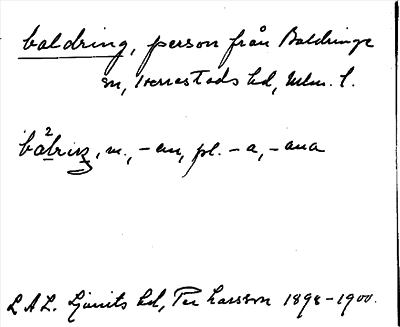 baldring, person från Baldringe
sn, Herrestads hd, Mlm. l.
m., -en, pl. -a, -ana
L A L. Ljunits hd, Per Larsson 1898-1900.